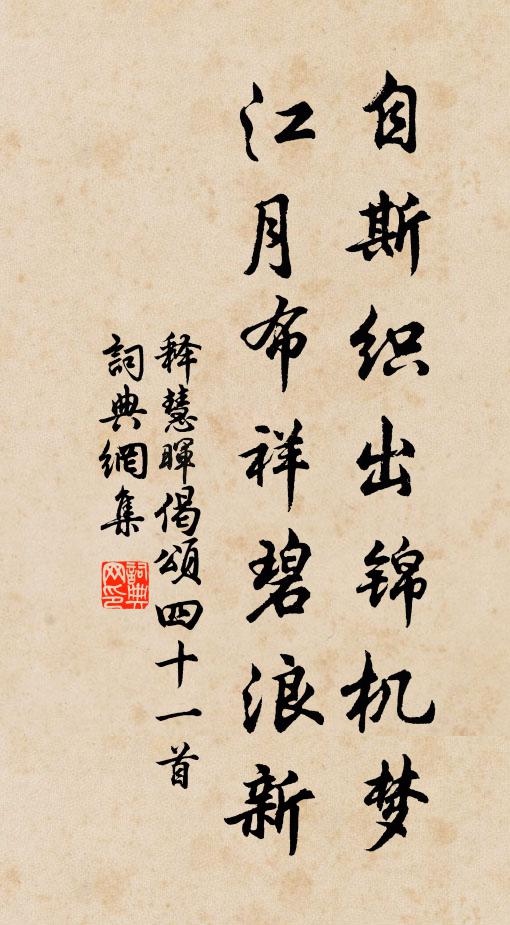 自斯织出锦机梦
江月布祥碧浪新
释慧暉偈頌四十一首
詞典網集
詞典网印